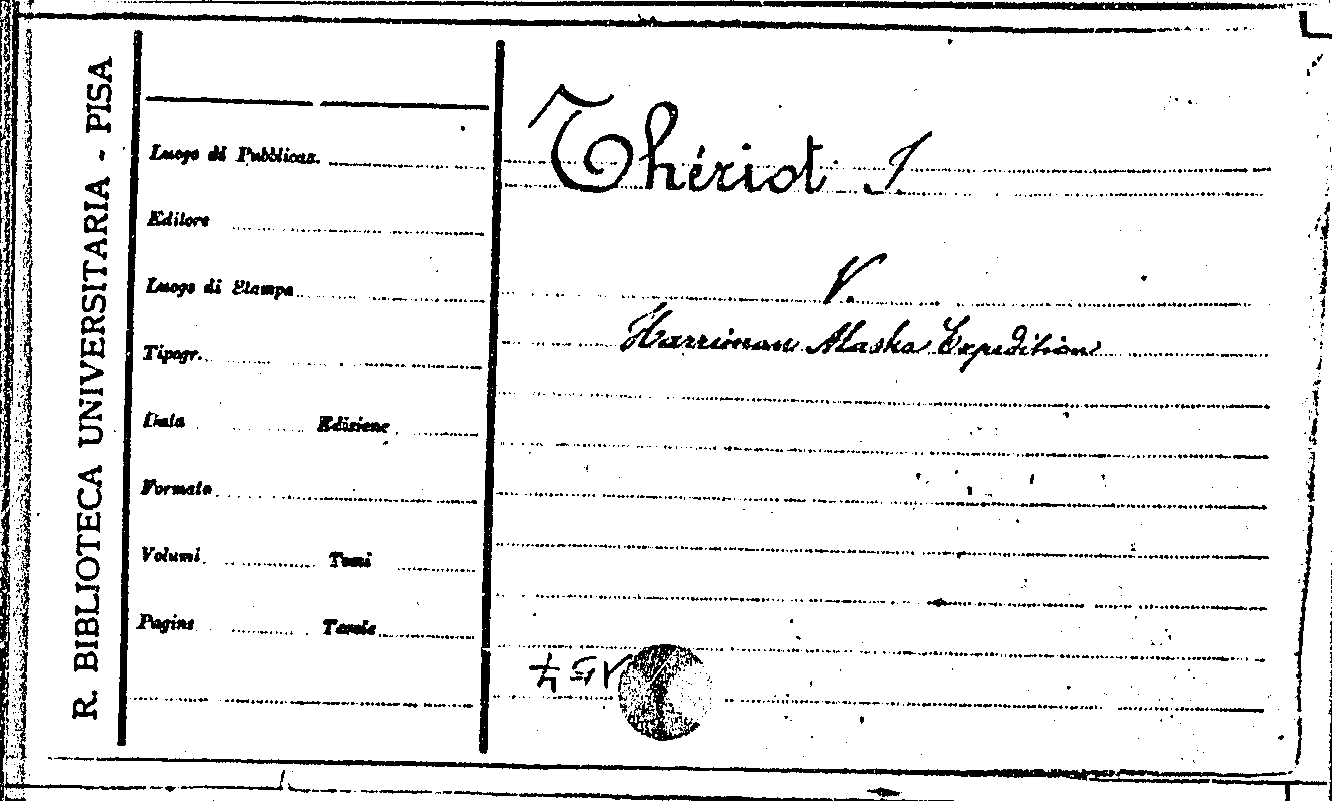 R. BIBLIOTECA UNIVERSITARIA - PISA
Luogo di Pubblicaz.
Editore
Luogo di Stampa
Tipogr.
Data Edizione
Formato
Volumi Tomi
Pagine Tavole
Thériot I.
V.
Harriman Alaska Expedition